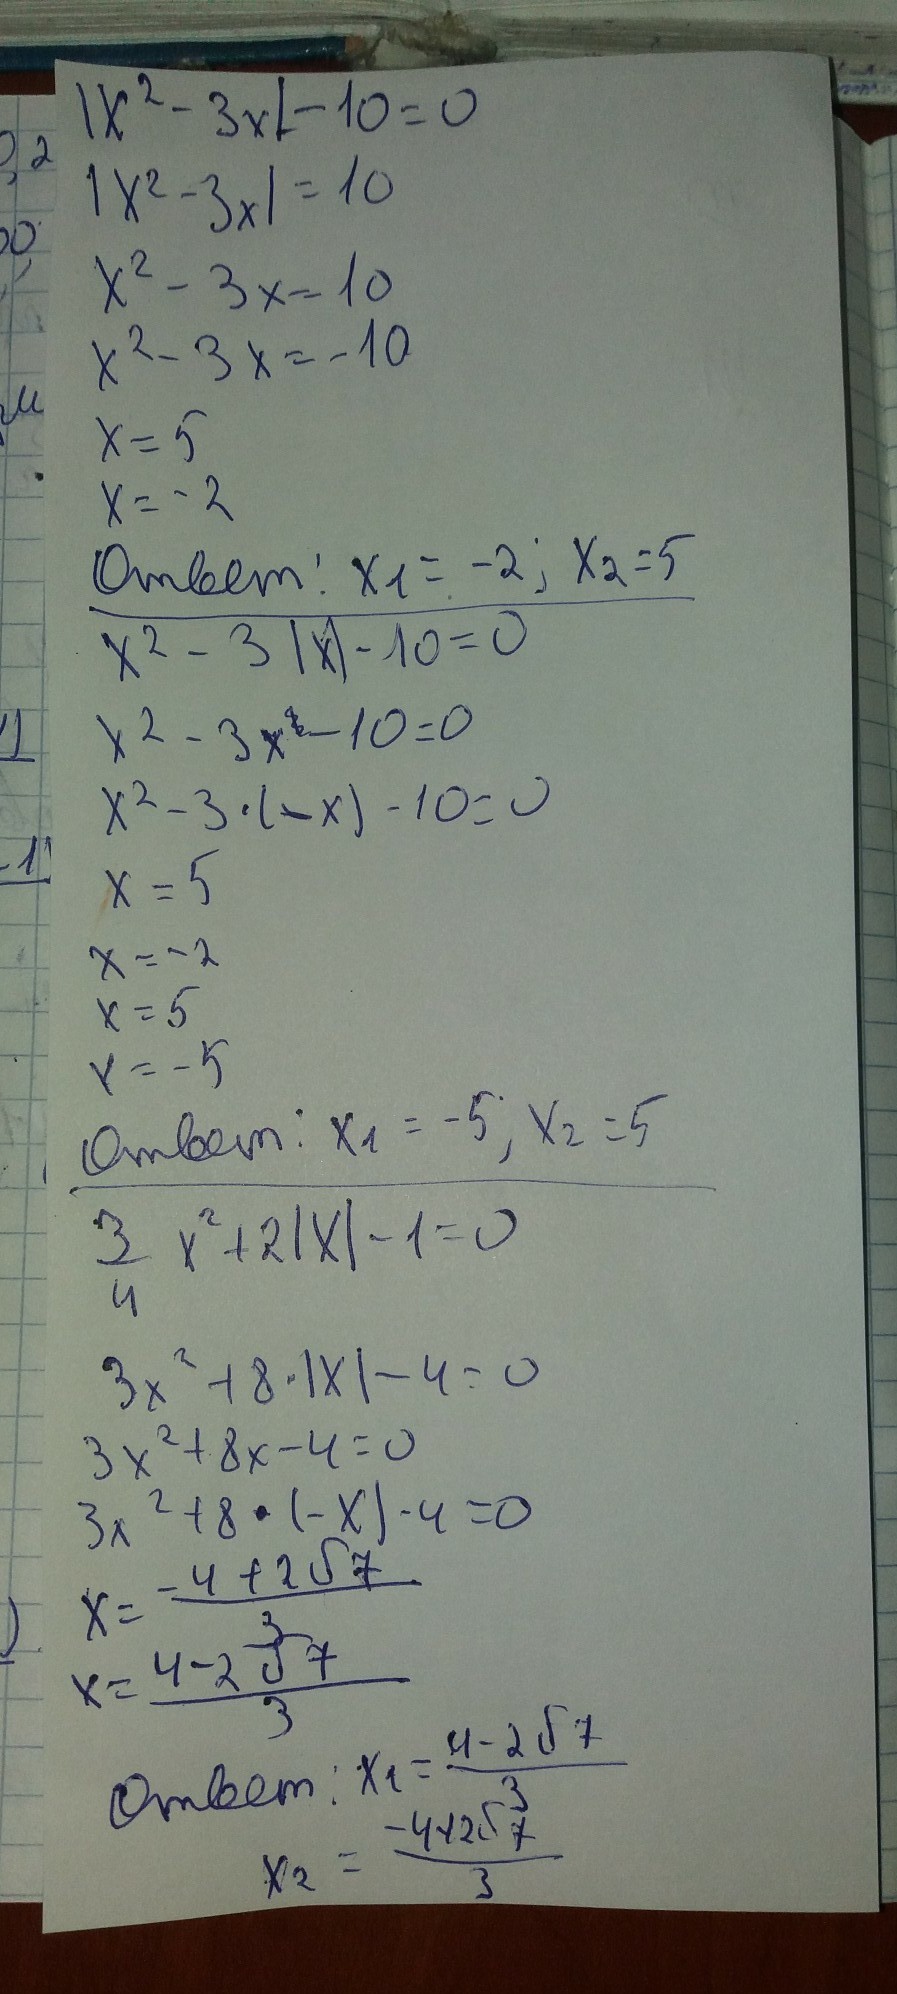 |x² - 3x| - 10 = 0
|x² - 3x| = 10
x² - 3x = 10
x² - 3x = -10
x = 5
x = -2
Ответ: x₁ = -2; x₂ = 5
x² - 3|x| - 10 = 0
x² - 3x - 10 = 0
x² - 3·(-x) - 10 = 0
x = 5
x = -2
x = 5
x = -5
Ответ: x₁ = -5; x₂ = 5
3/4 x² + 2|x| - 1 = 0
3x² + 8·|x| - 4 = 0
3x² + 8x - 4 = 0
3x² + 8·(-x) - 4 = 0
x = (-4 + 2√7)/3
x = (4 - 2√7)/3
Ответ: x₁ = (4 - 2√7)/3
x₂ = (-4 + 2√7)/3